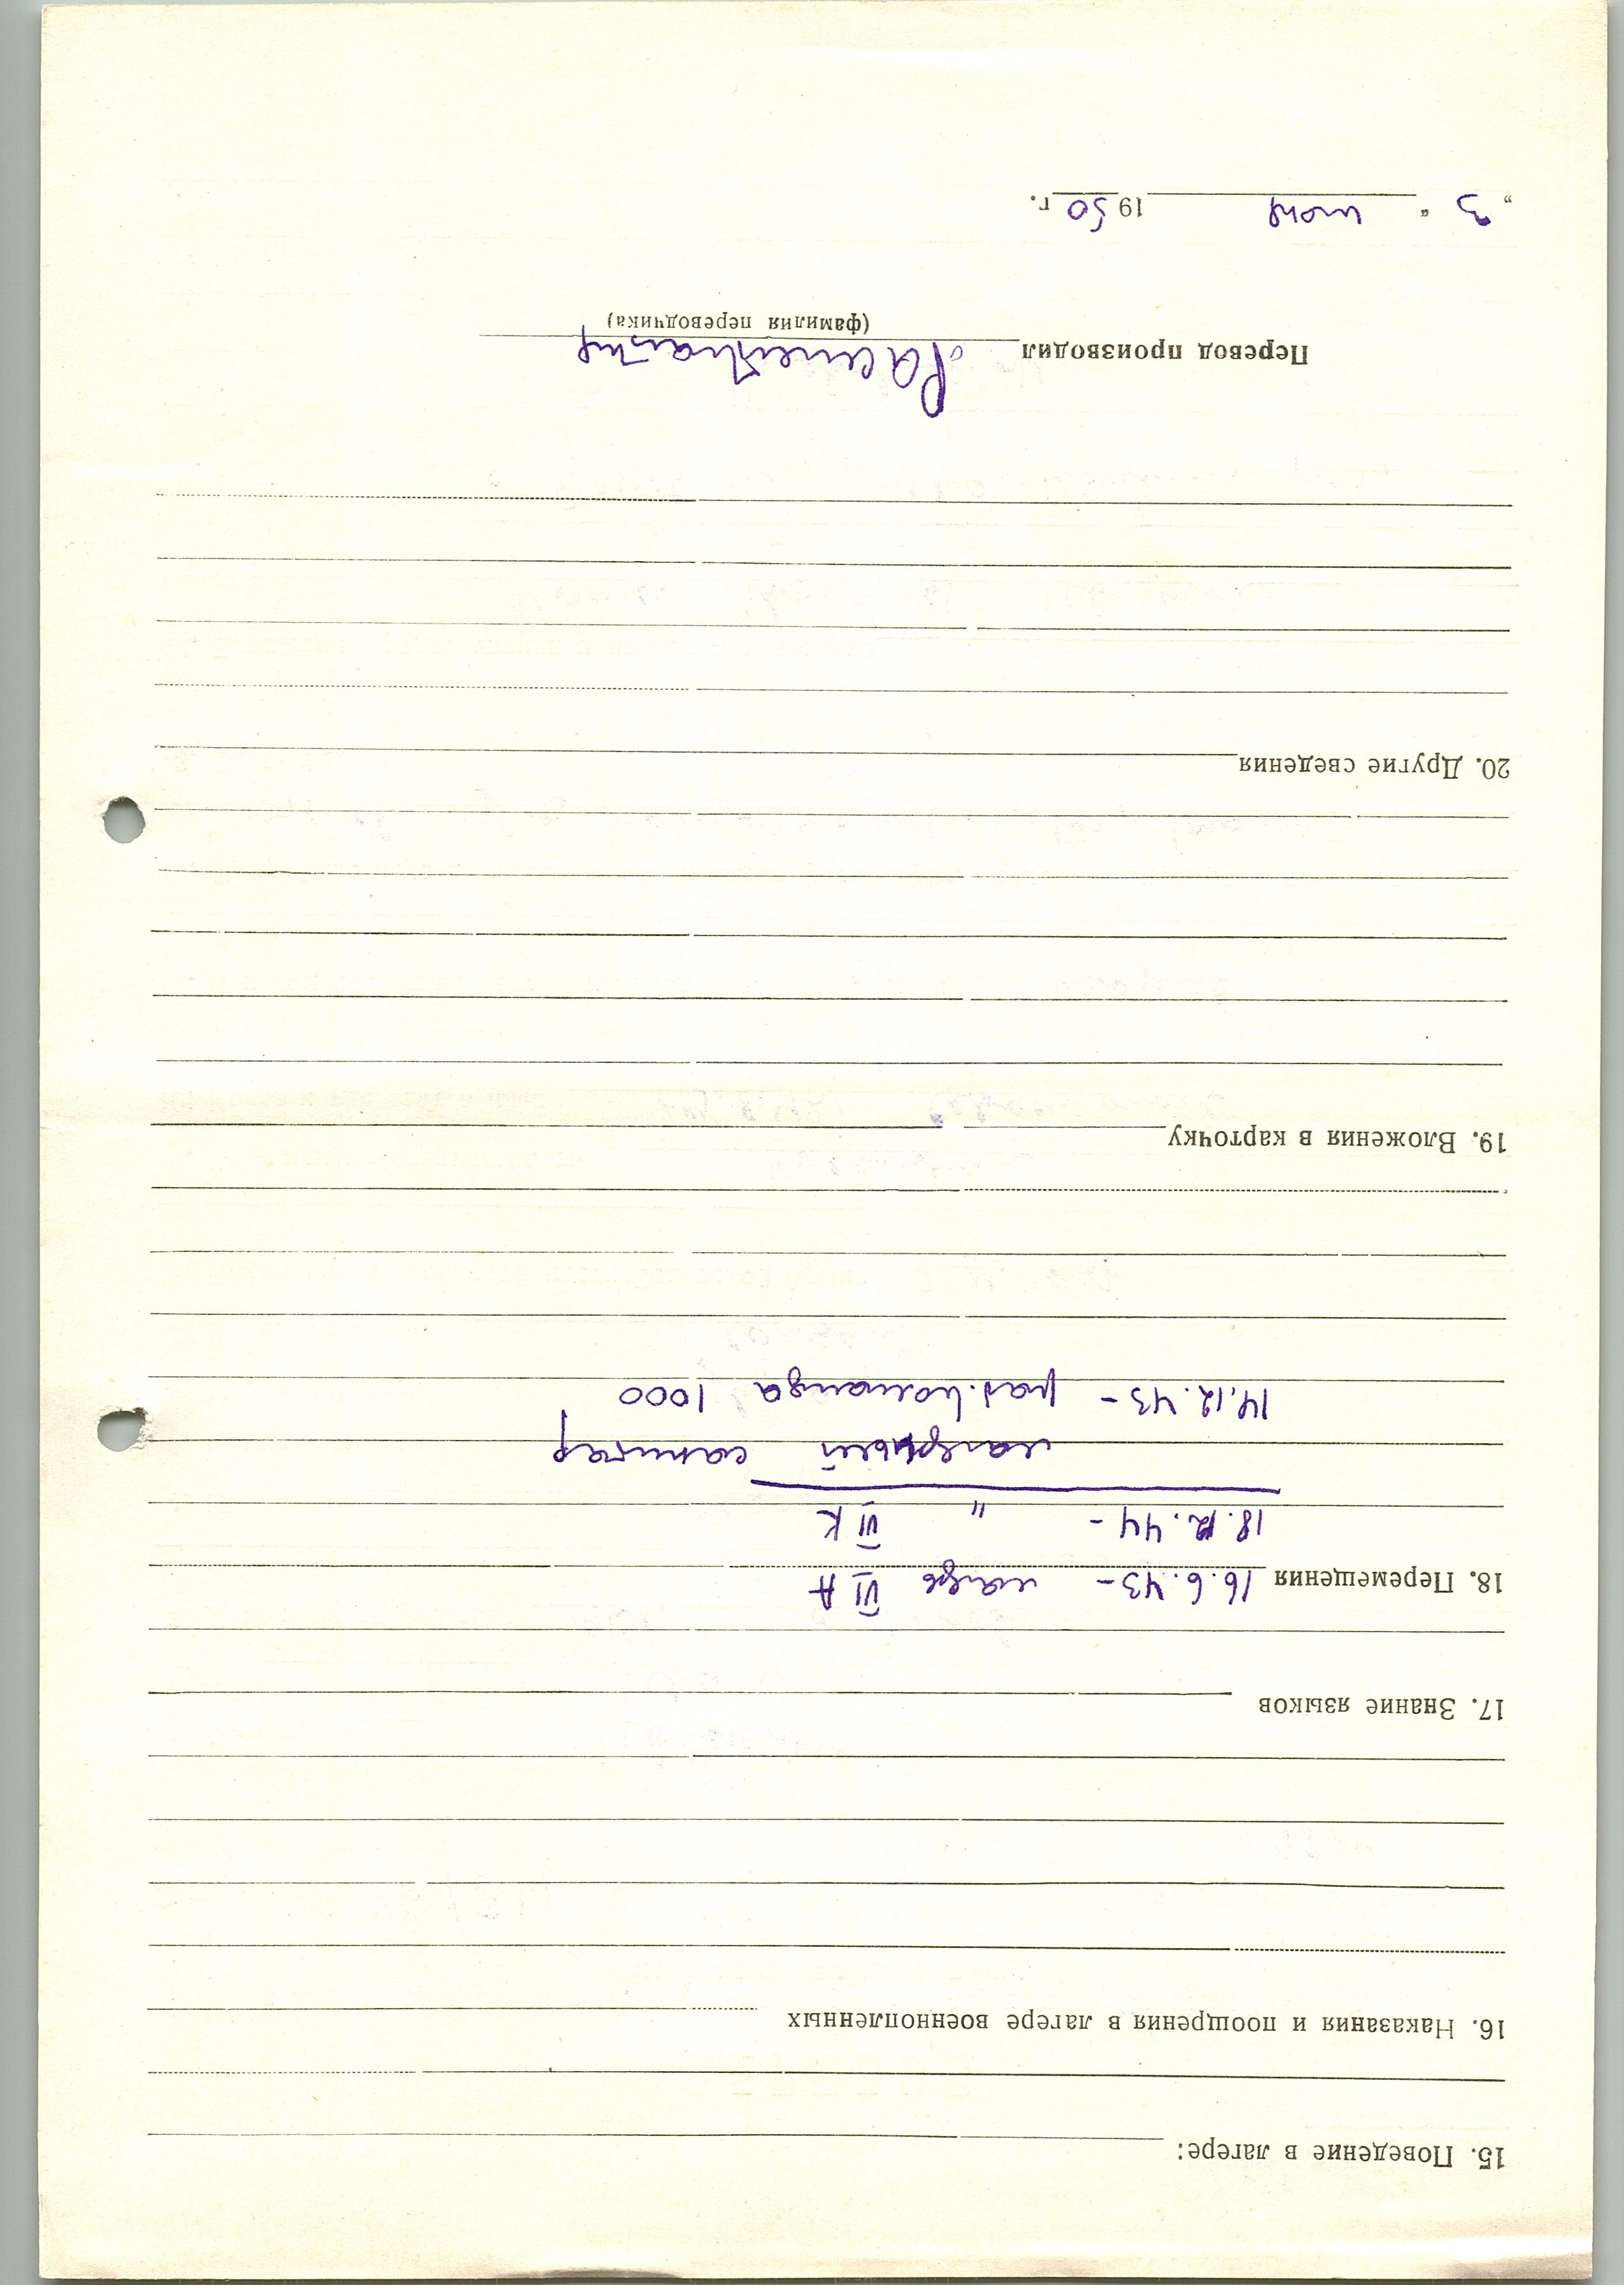 15. Поведение в лагере:
16. Наказания и поощрения в лагере военнопленных
17. Знание языков
18. Перемещения 16.6.43 – лагерь VI A
18.12.44 – " VI K
лагерный санитар
14.12.43 – раб. команда 1000
19. Вложения в карточку
20. Другие сведения
Перевод производил
(фамилия переводчика)
„3“ июня 1950 г.